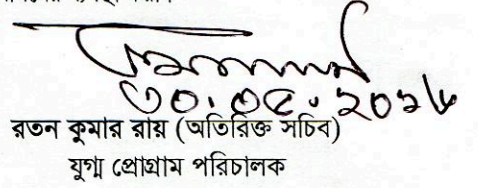 ৩০.০৫.২০১৬
রতন কুমার রায় (অতিরিক্ত সচিব)
যুগ্ম প্রোগ্রাম পরিচালক